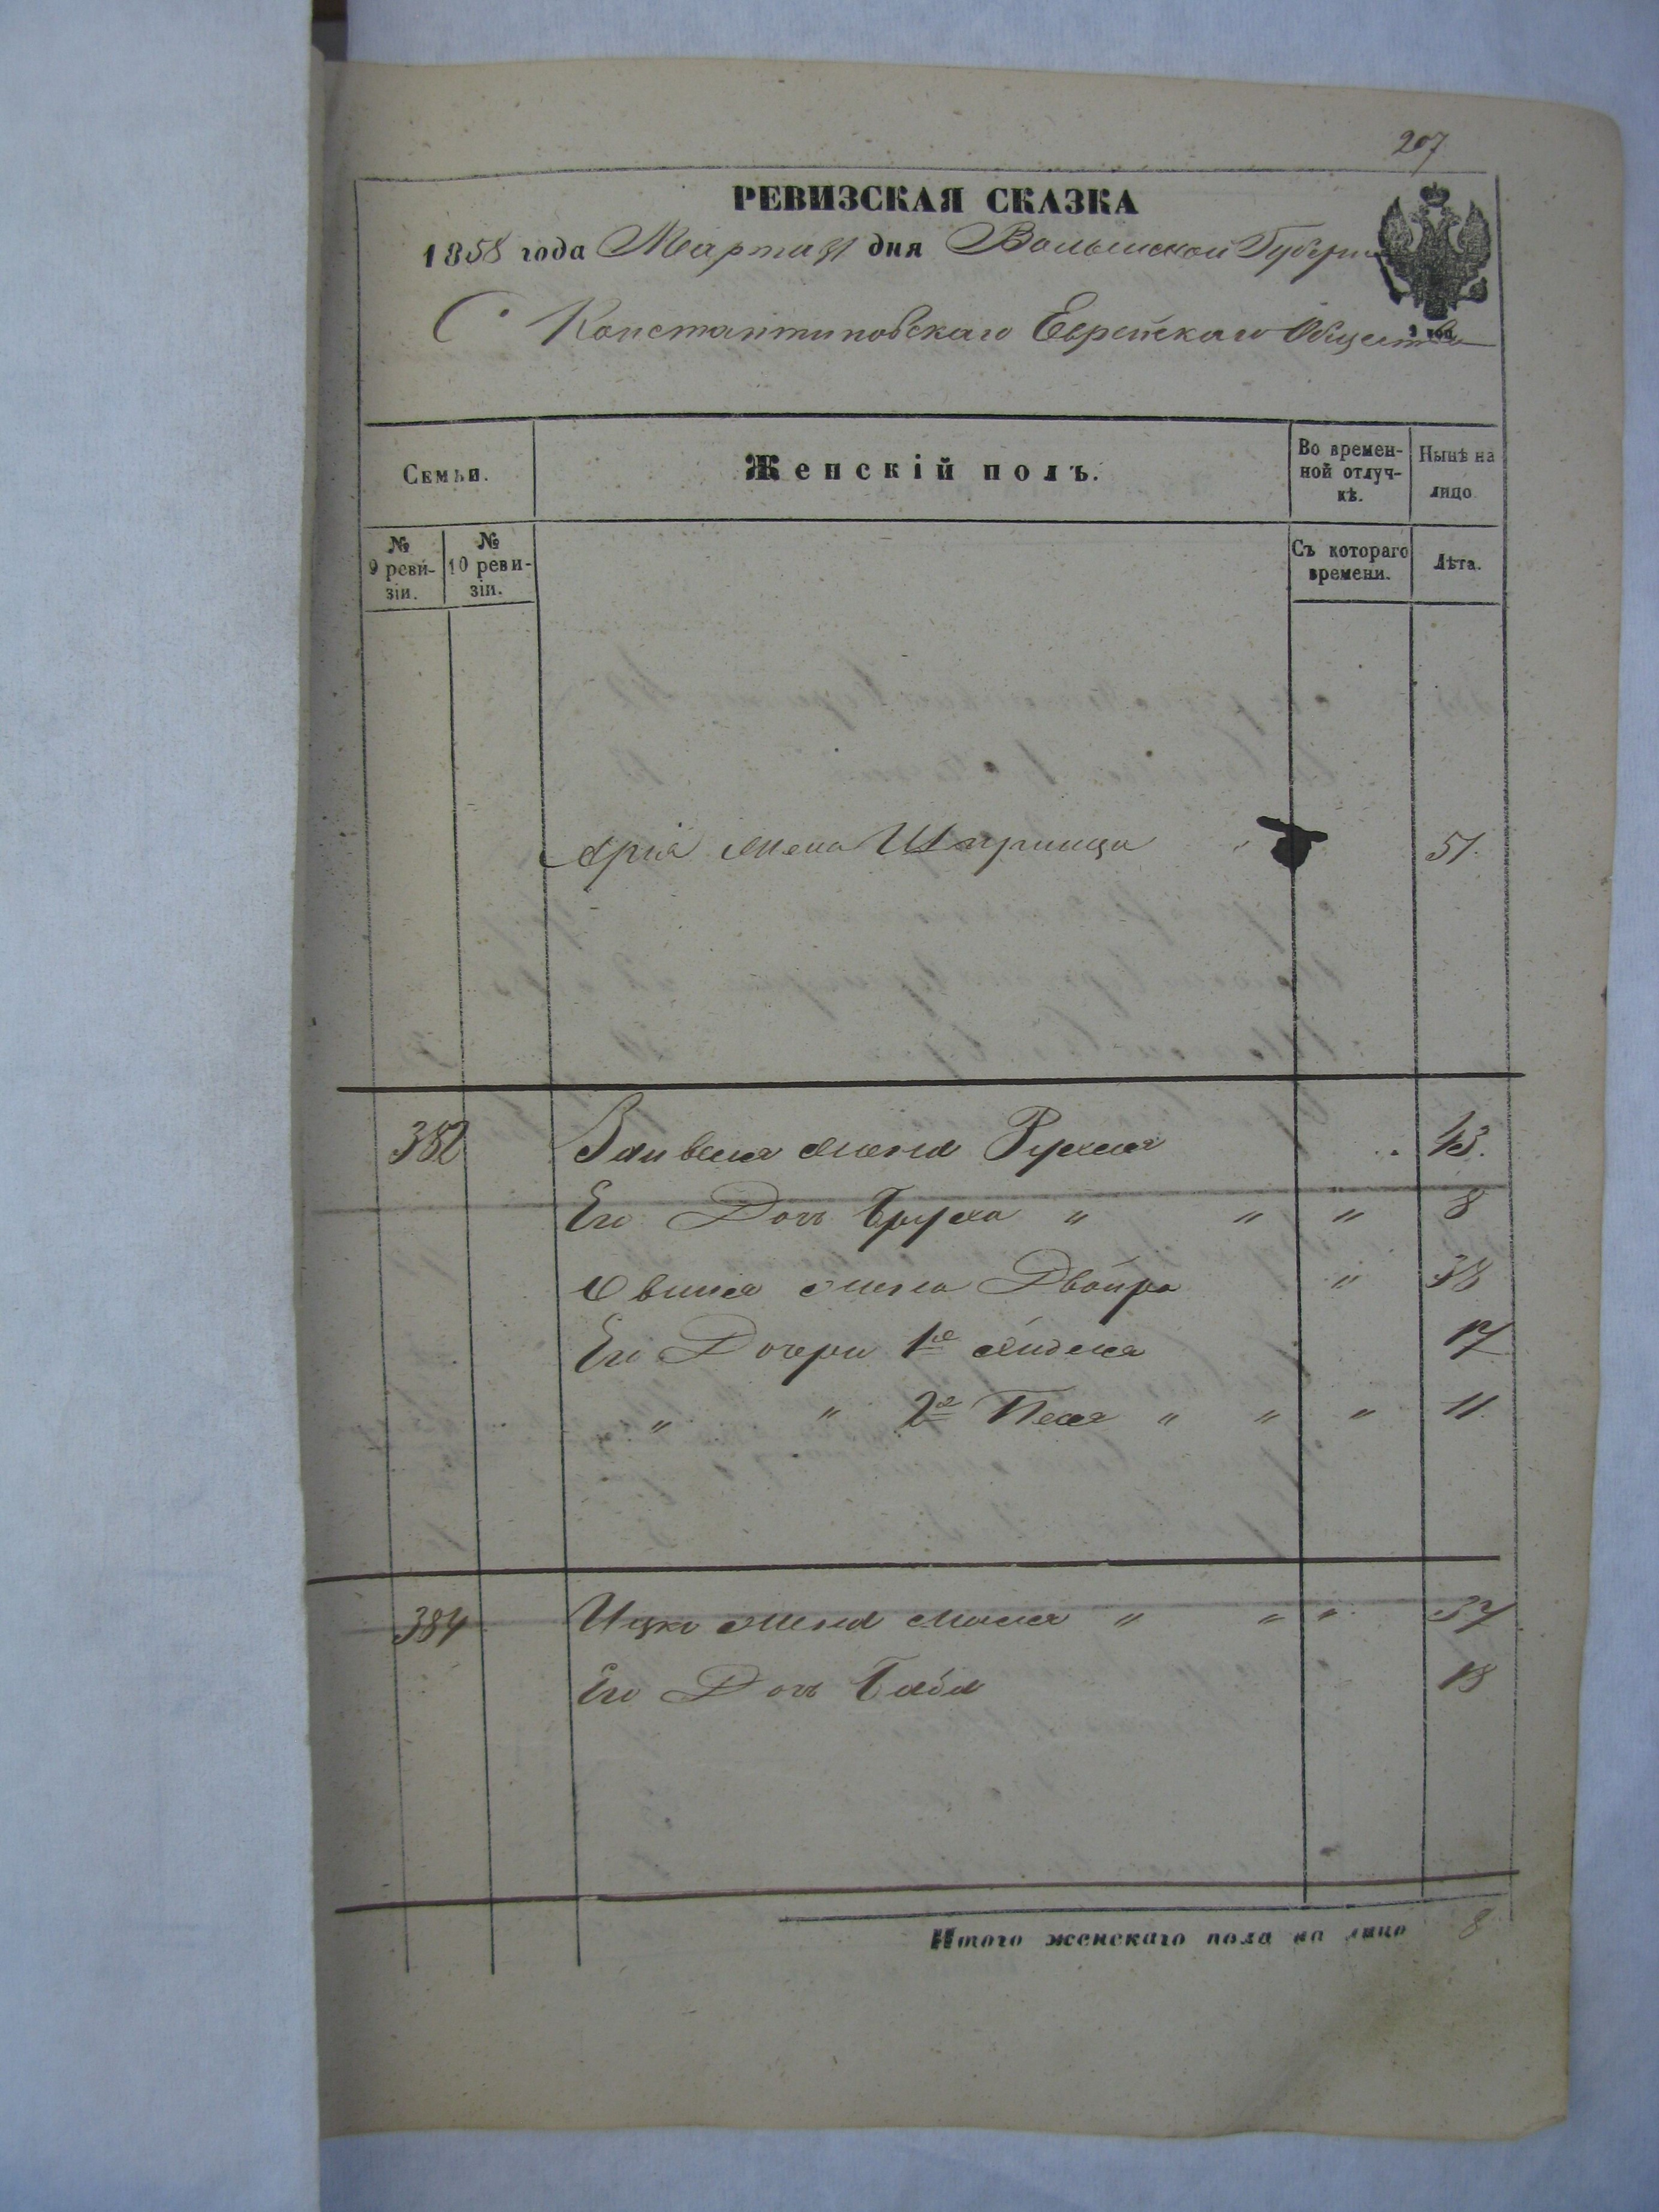 207
РЕВИЗСКАЯ СКАЗКА
1858 года Марта 31 дня Волынской Губерніи
С Константиновскаго Еврейскаго Общества
Семьи.
Женскій полъ.
Во времен-
ной отлуч-
кѣ.
Нынѣ на
лицо
№
9 реви-
зіи.
№
10 реви-
зіи.
Съ котораго
времени.
Лѣта.
Арія жена Шпринца 51.
382 жена Рухля 43.
Его Дочь Бруха " " " 8
Овшія жена Двойра " 38
Его Дочери 1я 17
" " 2я Песя " " " 11
384 Ицка жена " " " 37
Его Дочь Баба 18
Итого женскаго пола на лицо 8